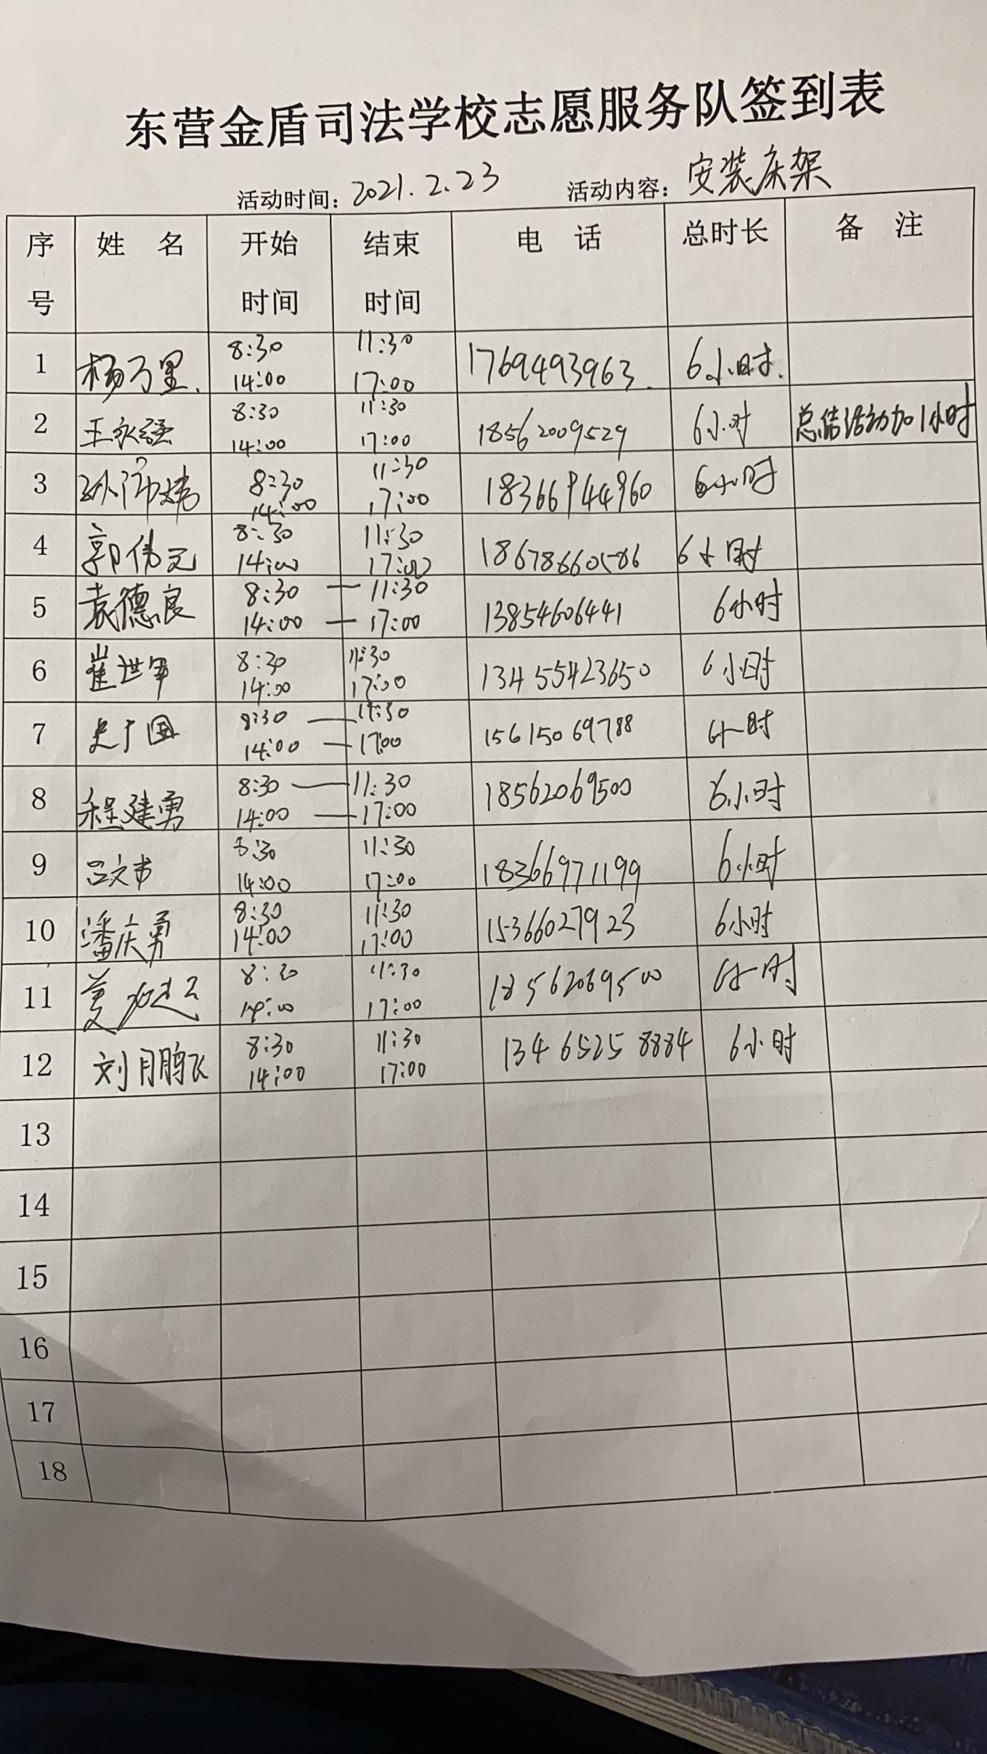 东营金盾司法学校志愿服务队签到表
活动时间：2021.2.23 活动内容：安装床架
序号 姓名 开始时间 结束时间 电话 总时长 备注
1 杨万里. 8:30 11:30 1769493963. 6小时.
14:00 17:00
2 王永强 8:30 11:30 18562009529 6小时 总结活动加1小时
14:00 17:00
3 8:30 11:30 18366944960 6小时
14:00 17:00
4 郭伟元 8:30 11:30 18678660586 6小时
14:00 17:00
5 袁德良 8:30 — 11:30 13854606441 6小时
14:00 — 17:00
6 崔世军 8:30 11:30 13455423650 6小时
14:00 17:00
7 史广国 8:30 — 11:30 15615069788 6小时
14:00 — 17:00
8 程建勇 8:30 — 11:30 18562069500 6小时
14:00 — 17:00
9 吕文市 8:30 11:30 18366971199 6小时
14:00 17:00
10 潘庆勇 8:30 11:30 15366027923 6小时
14:00 17:00
11 8:30 11:30 18562069500 6小时
14:00 17:00
12 刘月鹏飞 8:30 11:30 13465258884 6小时
14:00 17:00
13
14
15
16
17
18